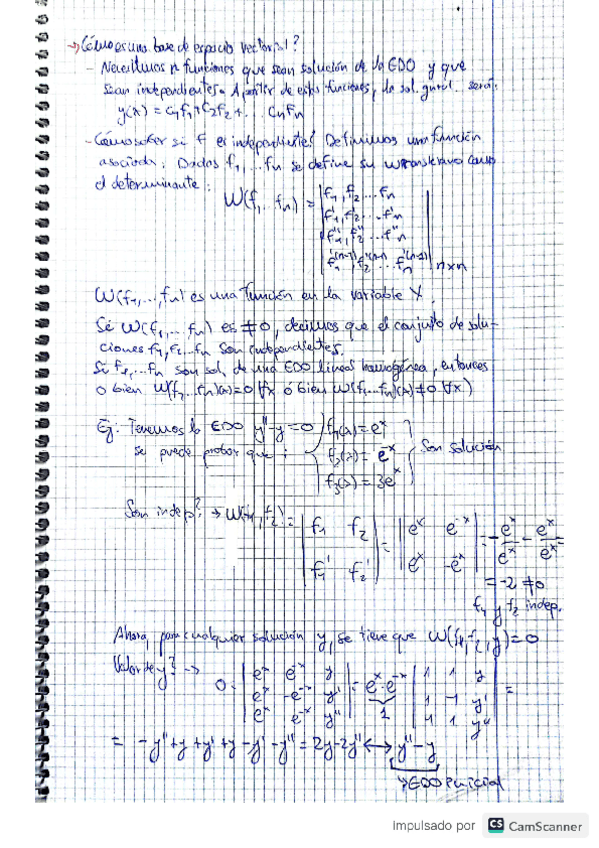 → ¿Cómo es una base de espacio vectorial?
- Necesitamos n funciones que sean solución de la EDO y que
sean independientes. A partir de estas funciones, la sol. gnral. será:
y(x) = C1f1+C2f2+... Cnfn
- ¿Cómo saber si f es independiente? Definimos una función
asociada. Dadas f1,...fn se define su wronskiano como
el determinante:
W(f1...fn) = | f1, f2 ... fn |
| f1', f2' ... f'n |
| f1'', f2'' ... f''n |
| f1^(n-1), f2^(n-1) ... fn^(n-1) | n×n
W(f1,...,fn) es una función en la variable X.
Si W(f1,...fn) es ≠0, decimos que el conjunto de solu-
ciones f1, f2...fn son independientes.
Si f1,...fn son sol. de una EDO lineal homogénea, entonces
o bien W(f1...fn)(x)=0 ∀x ó bien W(f1...fn)(x)≠0 ∀x)
Ej: Tenemos la EDO y''-y=0 f1(x)=e^x
se puede probar que: f2(x)= e^-x Son solución
f3(x)= 3e^x
Son indep? → W(f1,f2)= | f1 f2 | = | e^x e^-x | = -e^x/e^x - e^x/e^x
| f1' f2' | | e^x -e^-x |
= -2 ≠0
f1 y f2 indep.
Ahora, para cualquier solución y, se tiene que W(f1,f2,y)=0
Valor de y? → 0= | e^x e^-x y | = e^x·e^-x | 1 1 y | =
| e^x -e^-x y' | 1 | 1 -1 y' |
| e^x e^-x y'' | | 1 1 y'' |
= -y''+y+y'+y-y'-y''= 2y-2y'' ↔ y''-y
→ EDO inicial
Impulsado por CS CamScanner